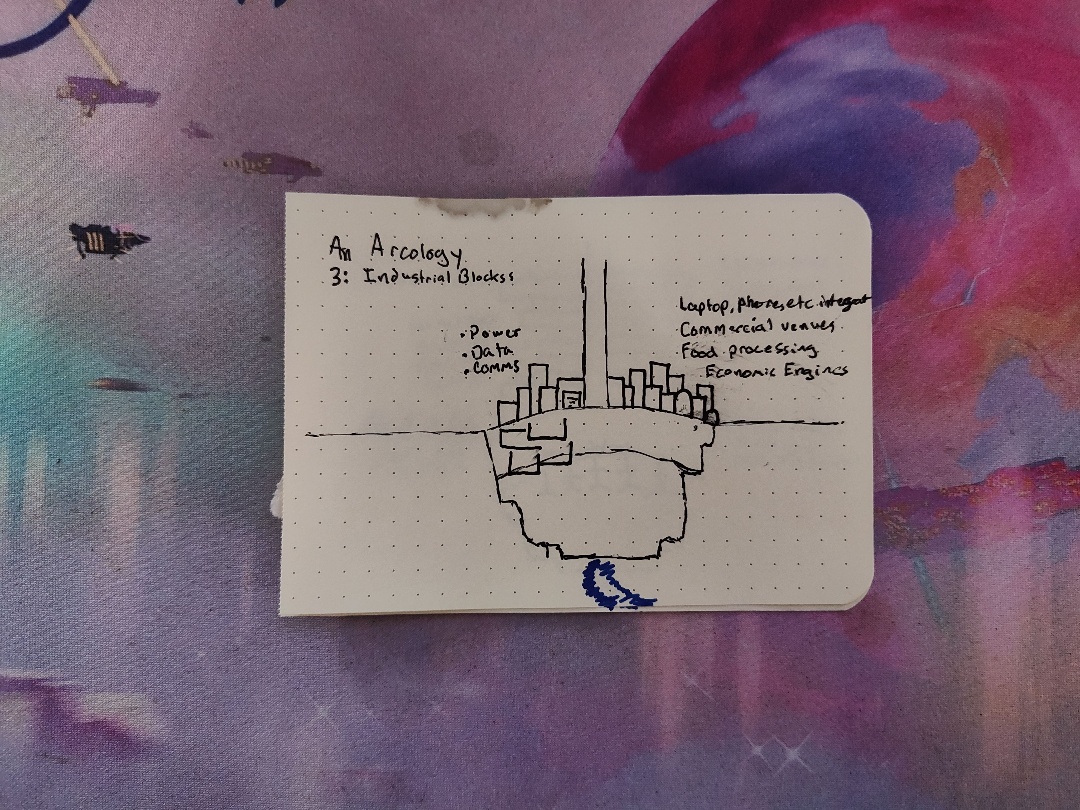 An Arcology
3: Industrial Blocks:
• Power
• Data
• Comms
Laptop, phones, etc. integrat
Commercial venues
Food processing
Economic Engines